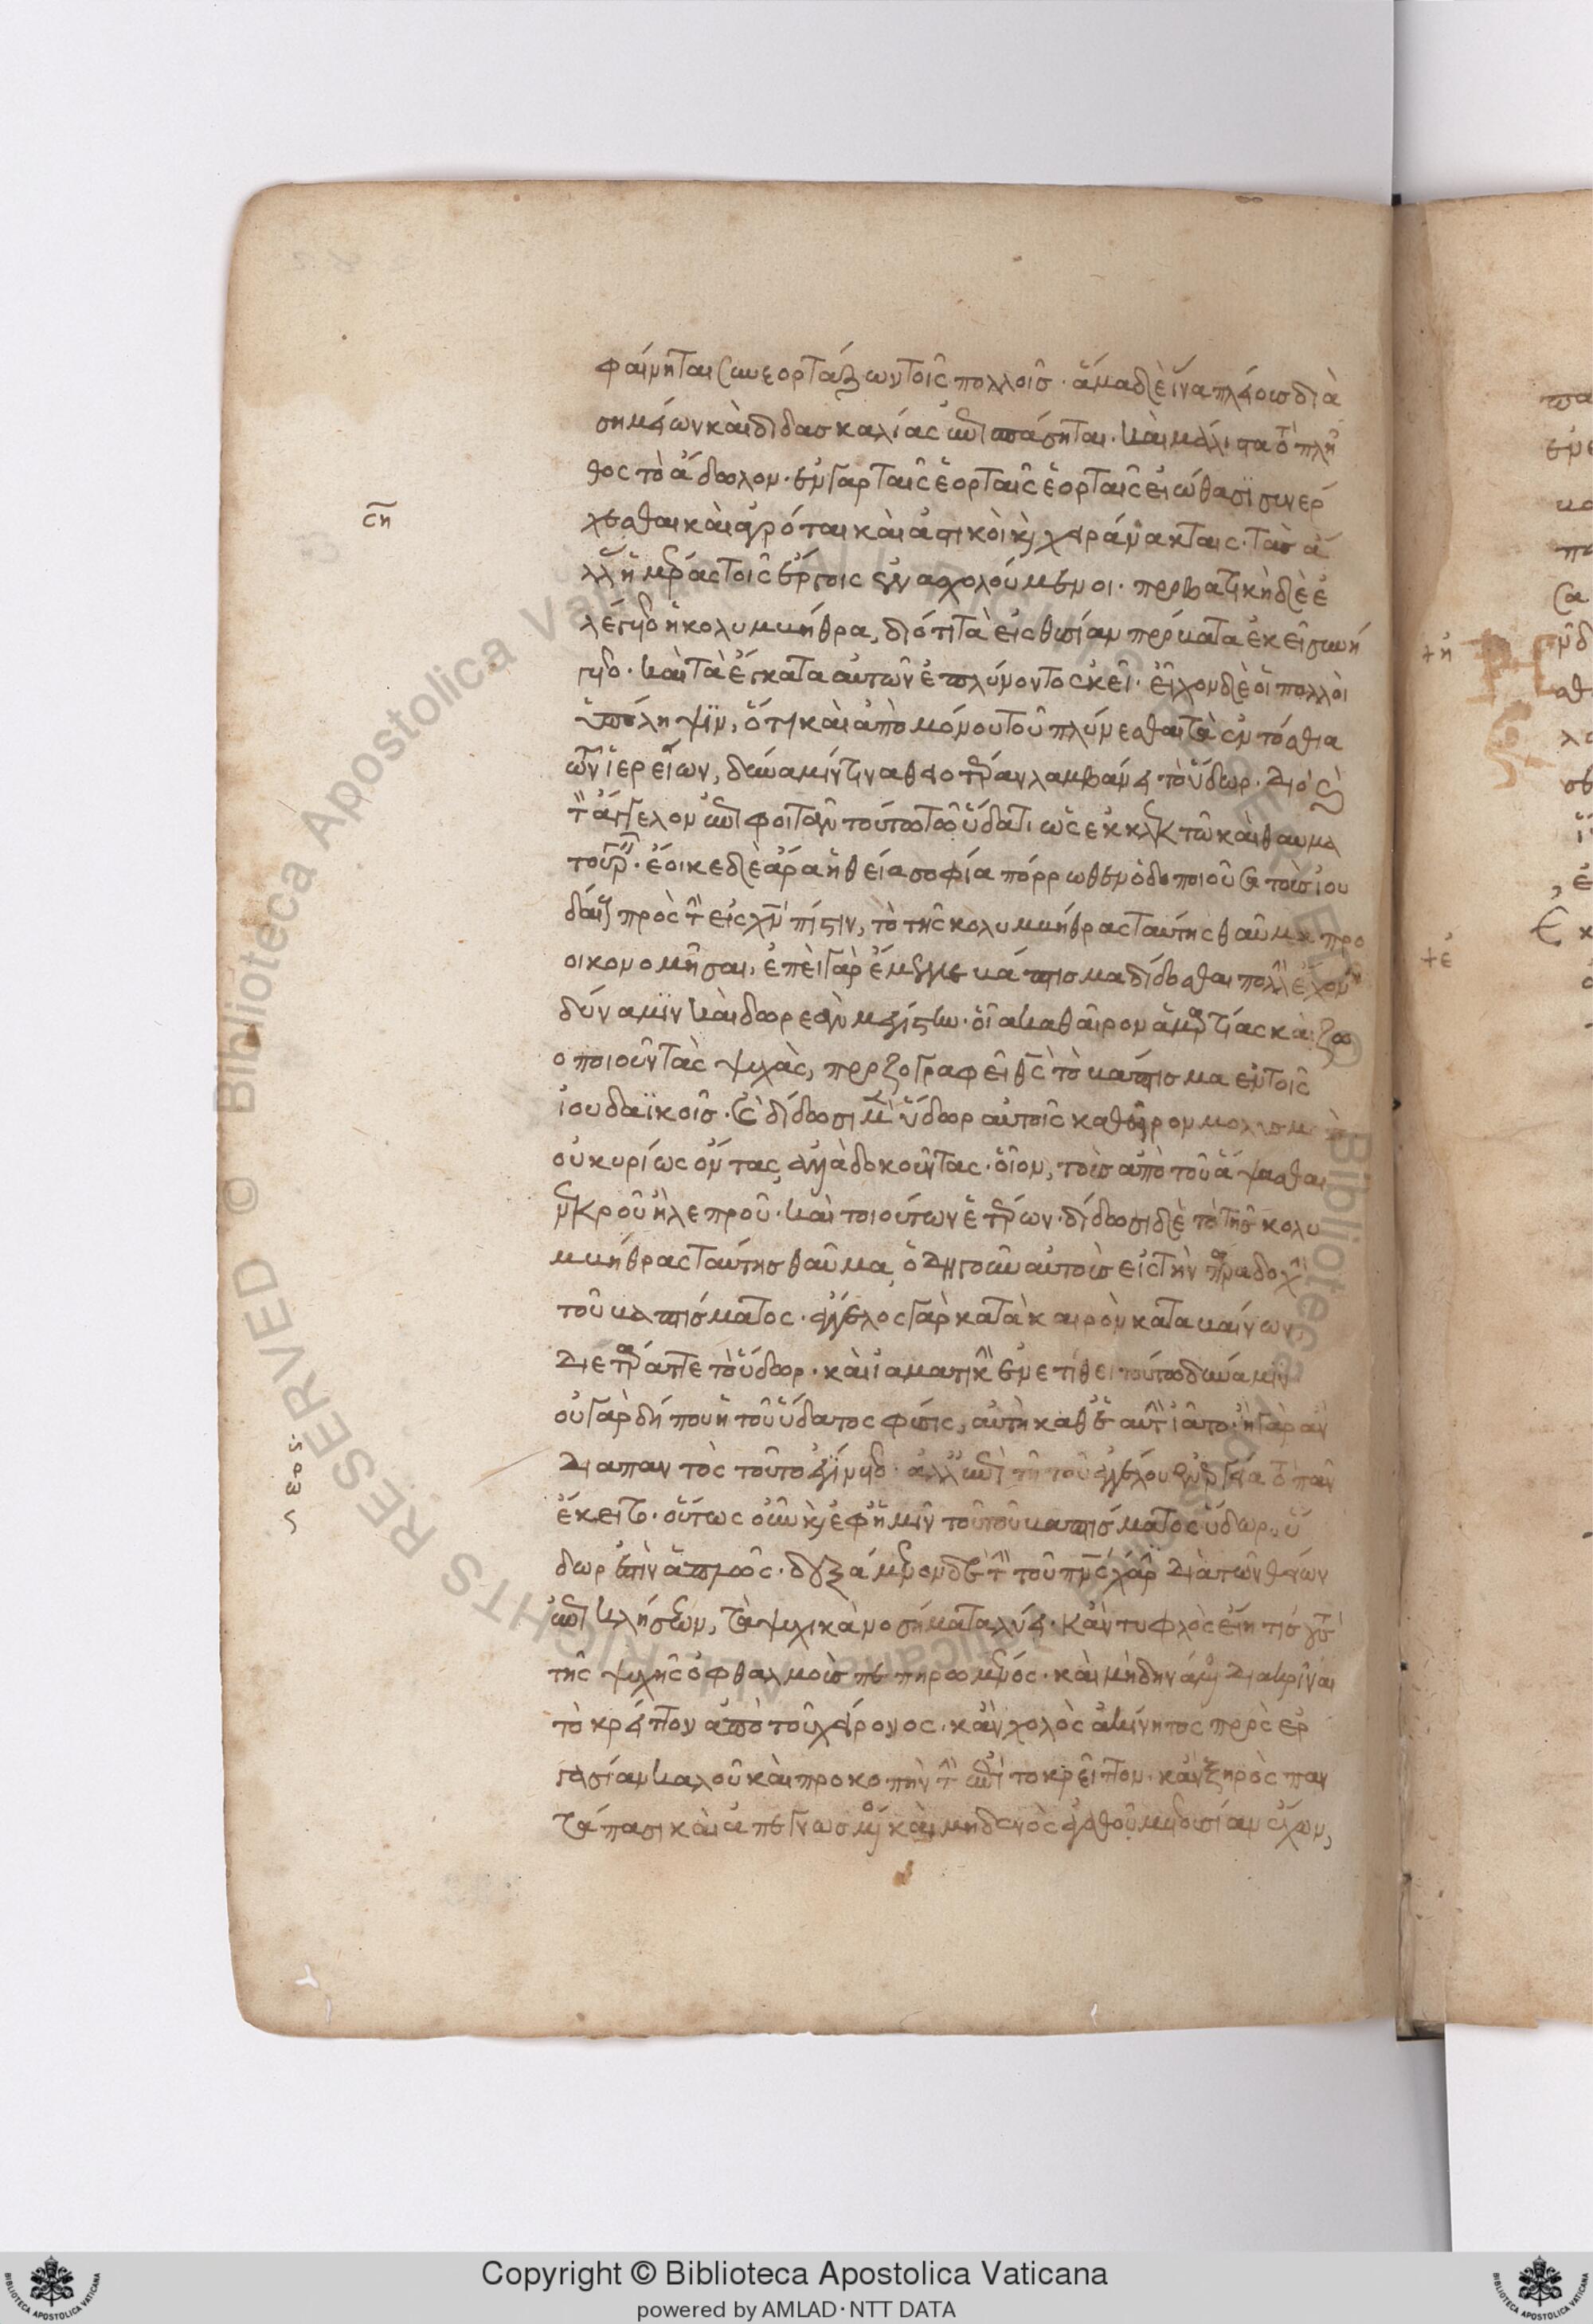 φαίνηται συνεορτάζων τοῖς πολλοῖς· ἅμα δὲ ἵνα πλείους διὰ
σημείων καὶ διδασκαλίας ἐπισπάσηται. καὶ μάλιστα τὸ πλῆ
θος τὸ ἄδωλον· ἐν γὰρ ταῖς ἑορταῖς ἑορταῖς εἰώθασι συνέρ
χεσθαι καὶ ἀγρόται καὶ ἀστικοὶ κ
λέγετο ἡ κολυμβήθρα, διότι τὰ εἰς θυσίαν πρόβατα ἐκεῖ συνή
γετο· καὶ τὰ ἔγκατα αὐτῶν ἐπλύνοντο ἐκεῖ· εἶχον δὲ οἱ πολλοὶ
ὑπόληψιν, ὅτι καὶ ἀπὸ μόνου τοῦ πλύνεσθαι τὰ ἐντόσθια
τῶν ἱερείων, δύναμίν τινα θειοτέραν λαμβάνει τὸ ὕδωρ. διὸ καὶ
τὸν ἄγγελον ἐπιφοιτᾶν τούτω τῶ ὕδατι ὡς ἐκλεκτῶ καὶ θαυμα
τουρ· ἔοικε δὲ ἄρα ἡ θεία σοφία πόρρωθεν ὁδοποιοῦσα τοῖς ἰου
δαίοις πρὸς τὴν εἰς χν πίστιν, τὸ τῆς κολυμβήθρας ταύτης θαῦμα προ
οικονομῆσαι, ἐπεὶ γὰρ ἔμελλε βάπτισμα δίδοσθαι πολλὴν ἔχον
δύναμιν καὶ δωρεὰν μεγίστην· οἷα καθαῖρον ἁμαρτίας καὶ ζω
οποιοῦν τὰς ψυχὰς, προζογραφεῖ θς τὸ βάπτισμα ἐν τοῖς
ἰουδαϊκοῖς· καὶ δίδωσι μὲν ὕδωρ αὐτοῖς καθαῖρον μολυσμοὺς
οὐ κυρίως ὄντας ἀλλὰ δοκοῦντας· οἷον, τοὺς ἀπὸ τοῦ ἅψασθαι
νεκροῦ ἢ λεπροῦ· καὶ τοιούτων ἑτέρων· δίδωσι δὲ τὸ τῆς κολυ
μβήθρας ταύτης θαῦμα ὁδηγοῦν αὐτοὺς εἰς τὴν παραδοχὴν
τοῦ βαπτίσματος· ἄγγελος γὰρ κατὰ καιρὸν καταβαίνων
διετάραττε τὸ ὕδωρ· καὶ ἰαματικὴν ἐνετίθει τούτω δύναμιν
οὐ γὰρ δήπου ἡ τοῦ ὕδατος φύσις, αὐτὴ καθ ἑαυτὴν ἰᾶτο· ἦ γὰρ ἂν
διαπαντὸς τοῦτο ἐγίνετο· ἀλλ ἐπὶ τῆ τοῦ ἀγγέλου ἐνεργεία τὸ πᾶν
ἔκειτο. οὕτως οὖν κ ἐφ ἡμῖν τοῦ τοῦ βαπτίσματος ὕδωρ, ὕ
δωρ ἐστὶν ἁπλῶς· δεξάμενον δὲ τὴν τοῦ πνς χάριν διὰ τῶν θείων
ἐπικλήσεων, τὰ ψυχικὰ νοσήματα λύει· κἂν τυφλὸς εἴη τις τοὺς
τῆς ψυχῆς ὀφθαλμοὺς πεπηρωμένος· καὶ μὴ δυνάμενος διακρῖναι
τὸ κρεῖττον ἀπὸ τοῦ χείρονος· κἂν χολὸς ἀκίνητος πρὸς ἐρ
γασίαν καλοῦ καὶ προκοπὴν τὴν ἐπὶ τὸ κρεῖττον· κἂν ξηρὸς παν
τάπασι καὶ ἀπεγνωσμένος καὶ μηδενὸς ἀγαθοῦ μετουσίαν ἔχων,
ση
Copyright © Biblioteca Apostolica Vaticana
powered by AMLAD·NTT DATA